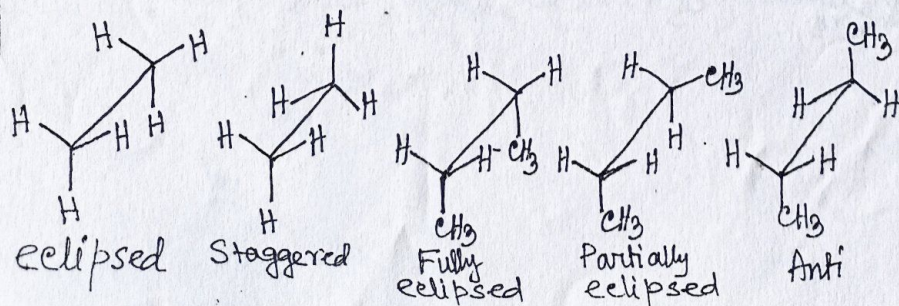 H H
H H H
H
eclipsed
H
H H
H H
H
Staggered
H H
H H CH3
CH3
Fully
eclipsed
H CH3
H H H
CH3
Partially
eclipsed
CH3
H H
H H
CH3
Anti